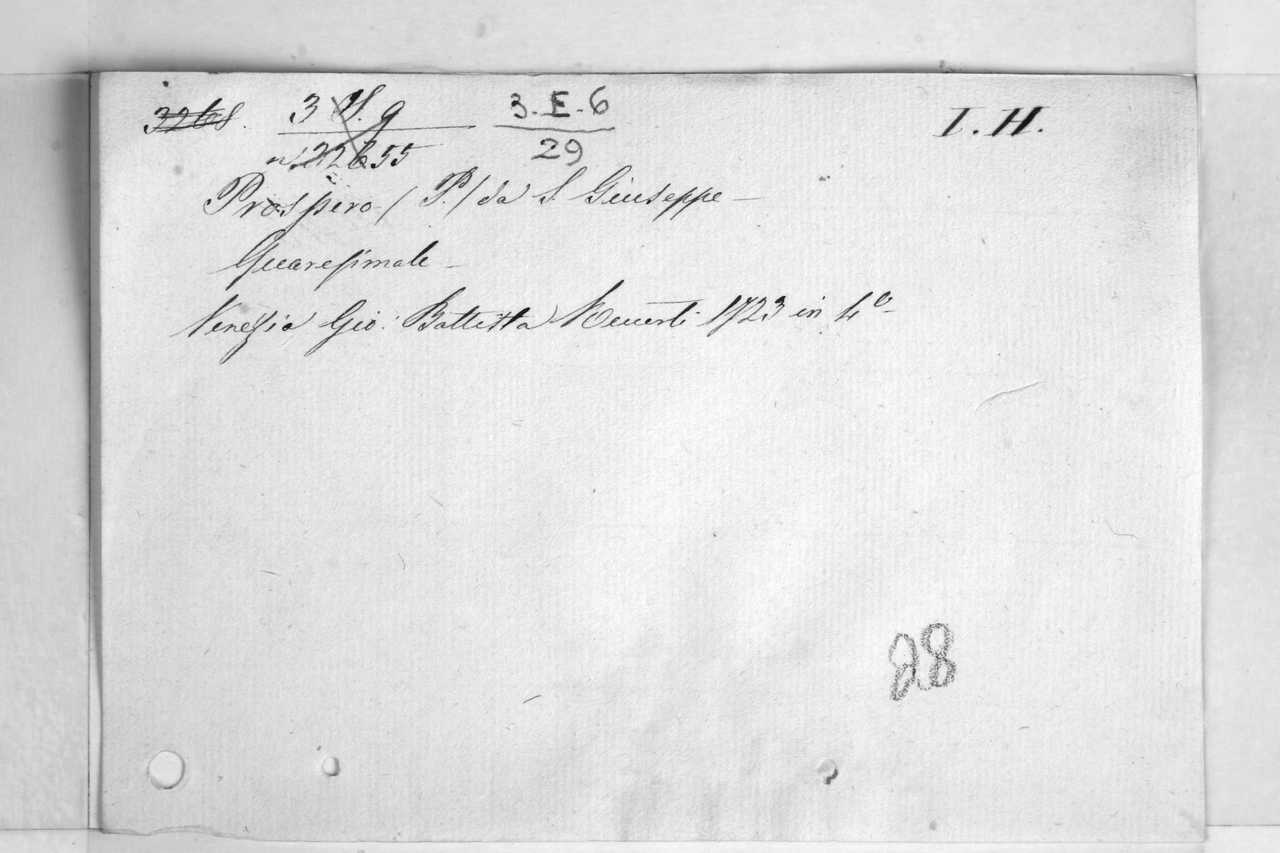 3268. 3 H. 9 3. E. 6 I. H.
n. 22655 29
Prospero / P. / da S. Giuseppe —
Quaresimale —
Venezia Gio: Battista Recurti 1723 in 4º
28